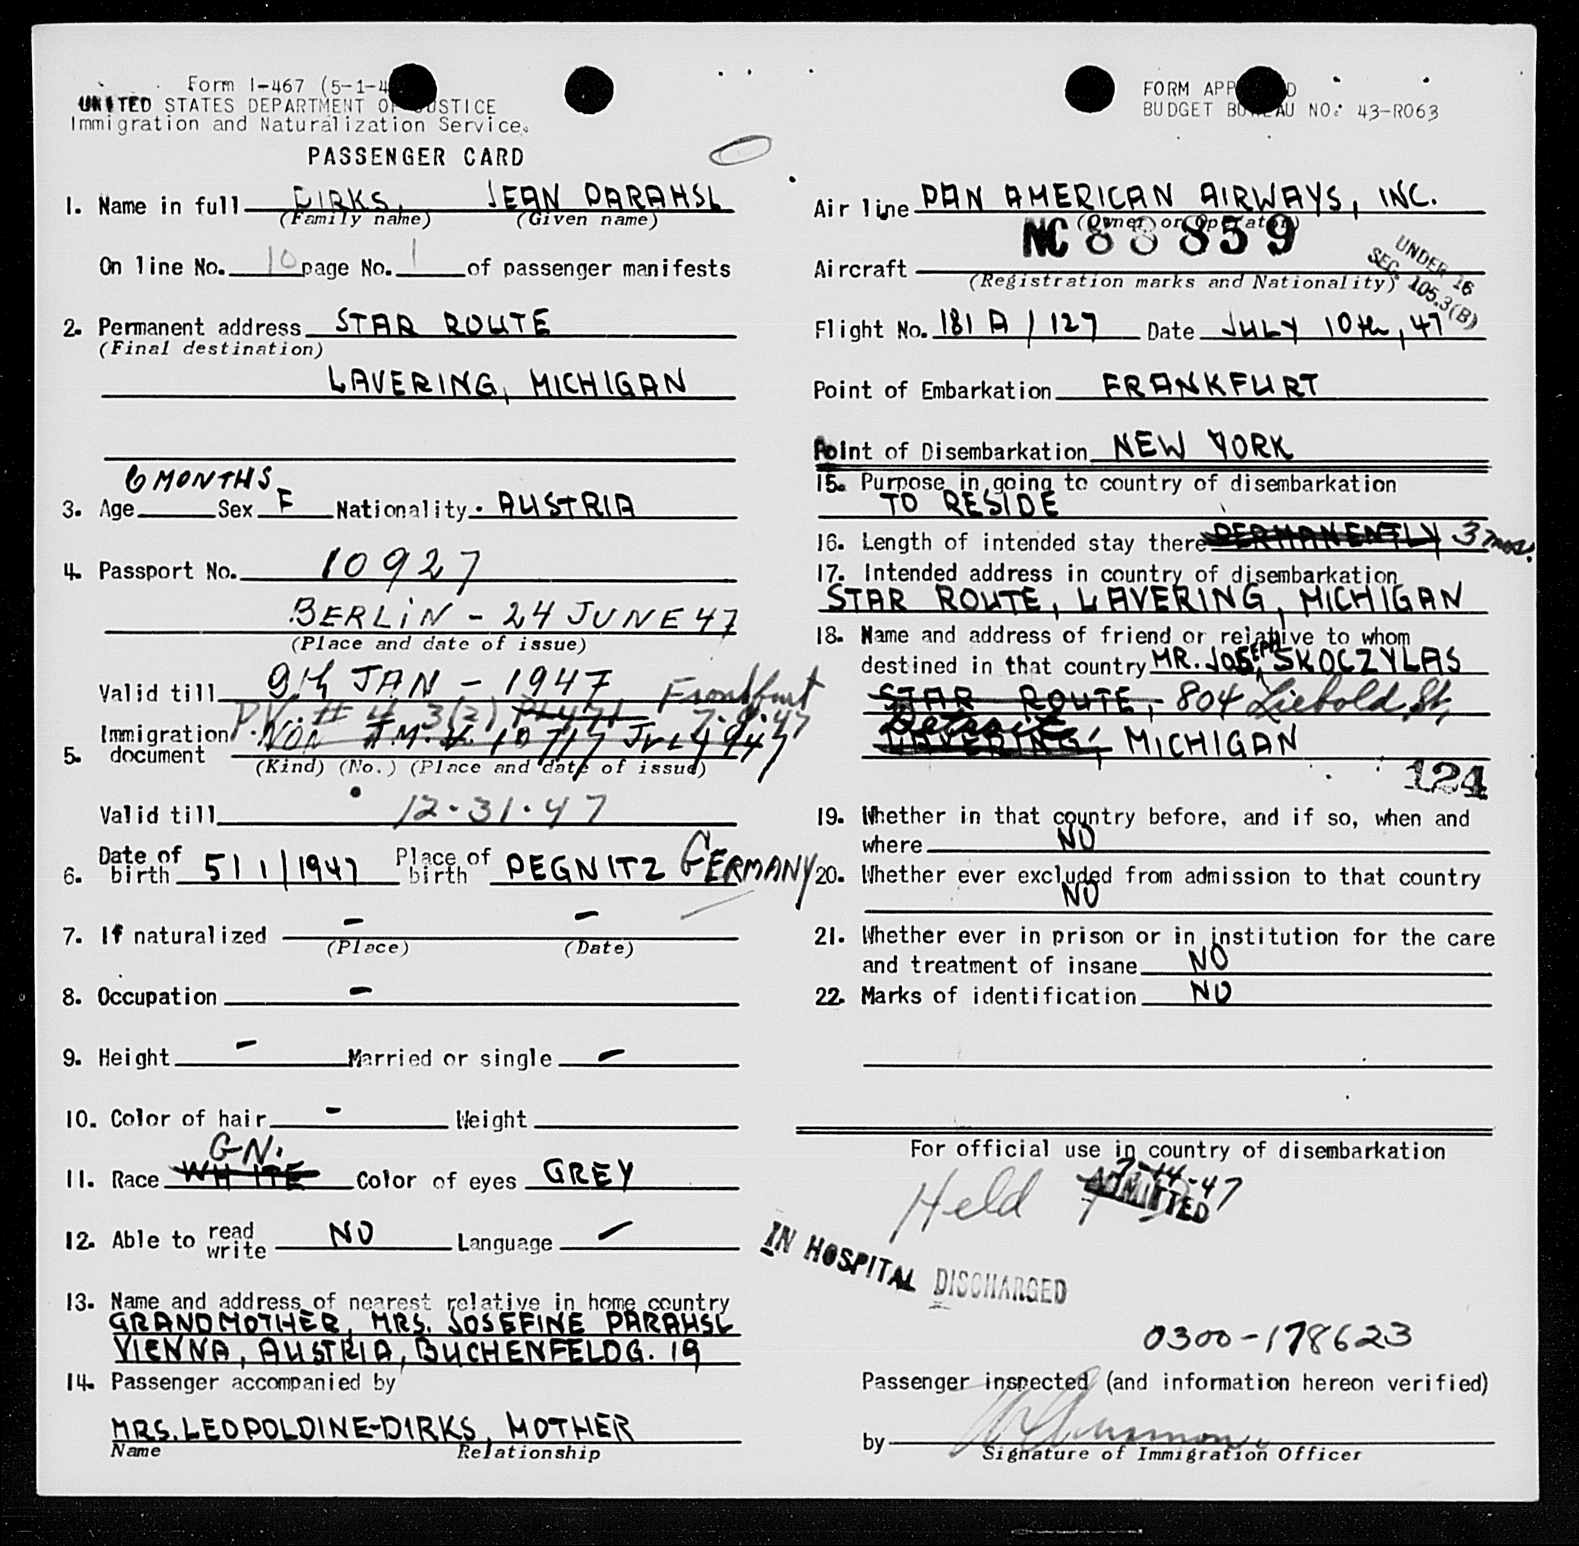 Form I-467 (5-1-4
UNITED STATES DEPARTMENT OF JUSTICE
Immigration and Naturalization Service.
PASSENGER CARD
1. Name in full DIRKS, JEAN PARAHSL
(Family name) (Given name)
On line No. 10 page No. 1 of passenger manifests
2. Permanent address STAR ROUTE
(Final destination)
LAVERING, MICHIGAN
6 MONTHS
3. Age Sex F Nationality AUSTRIA
4. Passport No. 10927
BERLIN - 24 JUNE 47
(Place and date of issue)
Valid till 9th JAN - 1947 Frankfurt
PV. # 4 3(2) 7-9-47
5. Immigration document NON IM. V.
(Kind) (No.) (Place and date of issue)
Valid till 12-31-47
6. Date of birth 5/1/1947 Place of birth PEGNITZ GERMANY
7. If naturalized - -
(Place) (Date)
8. Occupation -
9. Height - Married or single -
10. Color of hair - Weight
G-N.
11. Race WHITE Color of eyes GREY
12. Able to read write NO Language -
13. Name and address of nearest relative in home country
GRANDMOTHER, MRS. JOSEFINE PARAHSL
VIENNA, AUSTRIA, BUCHENFELDG. 19
14. Passenger accompanied by
MRS. LEOPOLDINE-DIRKS, MOTHER
Name Relationship
FORM APPROVED
BUDGET BUREAU NO. 43-R063
Air line PAN AMERICAN AIRWAYS, INC.
(Owner or Operator)
NC 88859
Aircraft
(Registration marks and Nationality)
UNDER 16
SEC. 105.3(B)
Flight No. 181 A / 127 Date JULY 10th, 47
Point of Embarkation FRANKFURT
Point of Disembarkation NEW YORK
15. Purpose in going to country of disembarkation
TO RESIDE
16. Length of intended stay there PERMANENTLY 3 mos.
17. Intended address in country of disembarkation
STAR ROUTE, LAVERING, MICHIGAN
18. Name and address of friend or relative to whom
destined in that country MR. JOSEPH SKOCZYLAS
STAR ROUTE, - 804 Liebold St,
Detroit
LAVERING, MICHIGAN
124
19. Whether in that country before, and if so, when and
where NO
20. Whether ever excluded from admission to that country
NO
21. Whether ever in prison or in institution for the care
and treatment of insane NO
22. Marks of identification NO
For official use in country of disembarkation
Held 7-14-47
ADMITTED
IN HOSPITAL DISCHARGED
0300-178623
Passenger inspected (and information hereon verified)
by
Signature of Immigration Officer